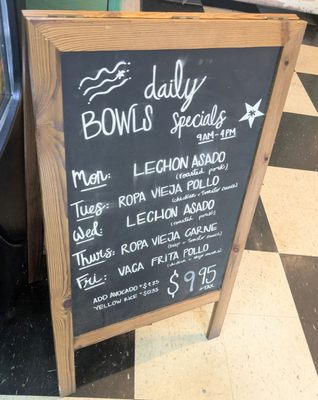 daily
BOWLS specials
9AM-4PM
Mon: LECHON ASADO
(roasted pork)
Tues: ROPA VIEJA POLLO
(chicken + tomato
Wed: LECHON ASADO
(roasted pork)
Thurs: ROPA VIEJA CARNE
+ tomato
Fri: VACA FRITA POLLO
(chicken +
ADD AVOCADO + $1.25
YELLOW RICE + $0.55
$9.95
+TAX